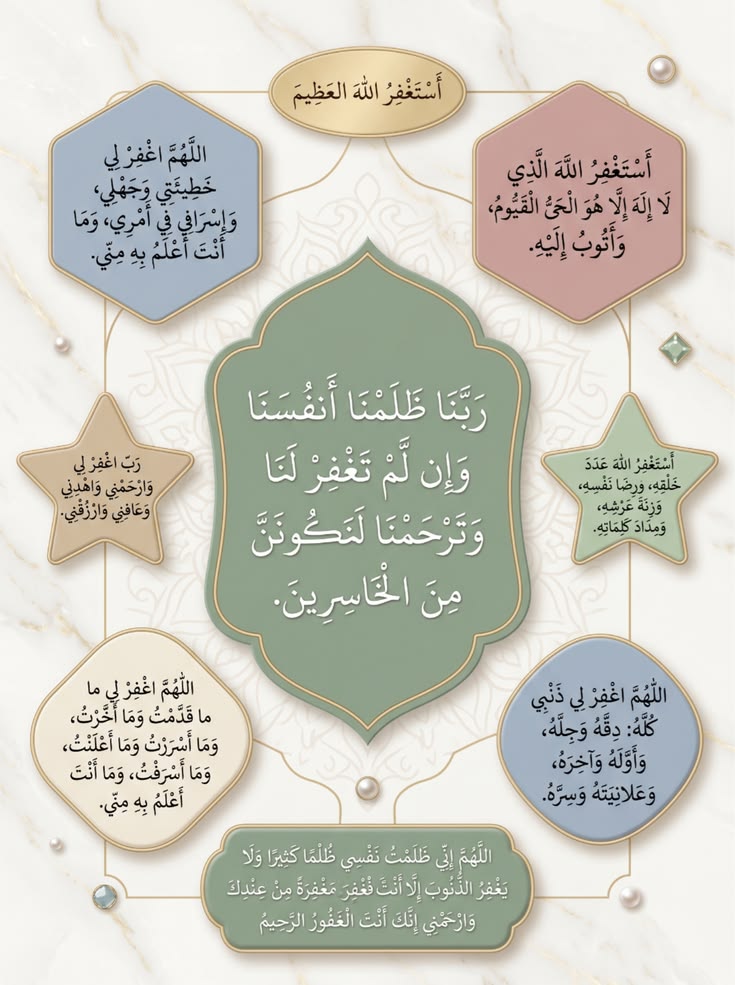 أَسْتَغْفِرُ اللهَ العَظِيمَ
أَسْتَغْفِرُ اللَّهَ الَّذِي
لَا إِلَهَ إِلَّا هُوَ الْحَيُّ الْقَيُّومُ،
وَأَتُوبُ إِلَيْهِ.
اللَّهُمَّ اغْفِرْ لِي
خَطِيئَتِي وَجَهْلِي،
وَإِسْرَافِي فِي أَمْرِي، وَمَا
أَنْتَ أَعْلَمُ بِهِ مِنِّي.
رَبَّنَا ظَلَمْنَا أَنفُسَنَا
وَإِن لَّمْ تَغْفِرْ لَنَا
وَتَرْحَمْنَا لَنَكُونَنَّ
مِنَ الْخَاسِرِينَ.
أَسْتَغْفِرُ اللهَ عَدَدَ
خَلْقِهِ، ورِضَا نَفْسِهِ،
وَزِنَةَ عَرْشِهِ،
وَمِدَادَ كَلِمَاتِهِ.
رَبّ اغْفِرْ لِي
وَارْحَمْنِي وَاهْدِنِي
وَعَافِنِي وَارْزُقْنِي.
اللهُمَّ اغْفِرْ لِي ذَنْبِي
كُلَّهُ: دِقَّهُ وَجِلَّهُ،
وَأَوَّلَهُ وَآخِرَهُ،
وَعَلَانِيَتَهُ وَسِرَّهُ.
اللهُمَّ اغْفِرْ لِي ما
ما قَدَّمْتُ وَمَا أَخَّرْتُ،
وَمَا أَسْرَرْتُ وَمَا أَعْلَنْتُ،
وَمَا أَسْرَفْتُ، وَمَا أَنْتَ
أَعْلَمُ بِهِ مِنِّي.
اللَّهُمَّ إِنِّي ظَلَمْتُ نَفْسِي ظُلْمًا كَثِيرًا وَلَا
يَغْفِرُ الذُّنُوبَ إِلَّا أَنْتَ فَغْفِرَ مَغْفِرَةً مِنْ عِنْدِكَ
وَارْحَمْنِي إِنَّكَ أَنْتَ الْغَفُورُ الرَّحِيمُ